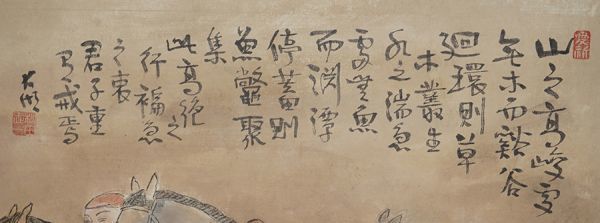 山之高峻處
無木而谿谷
廻環則草
木叢生
水之湍急
處無魚
而淵潭
停蓄則
魚鼈聚
集
此高絶之
行褊急
之衷
君子重
有戒焉